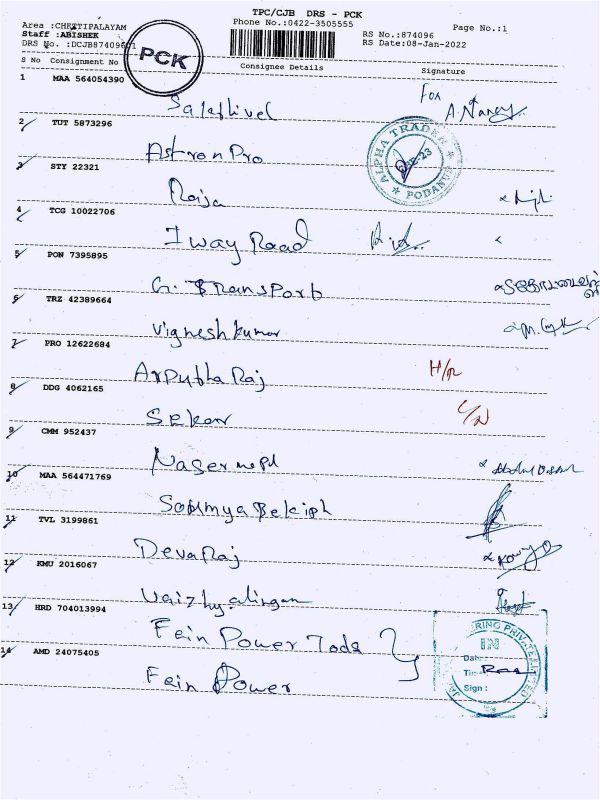 TPC/CJB DRS - PCK
Area :CHETTIPALAYAM
Phone No.:0422-3505555
Page No.:1
Staff :ABISHEK
RS No.:874096
DRS No. :DCJB874096D1
RS Date:08-Jan-2022
PCK
S No Consignment No Consignee Details Signature
1 MAA 564054390
Sakthivel
For A. Nancy
2 TUT 5873296
Astron Pro
ALPHA TRADER PODANUR
3 STY 22321
Raija
4 TCG 10022706
I way Road
5 PON 7395895
G. Transport
6 TRZ 42389664
Vigneshkumar
7 PRO 12622684
Arputha Raj
H/R
8 DDG 4062165
Sekar
9 CMM 952437
Naser
10 MAA 564471769
Soumya
11 TVL 3199861
DevaRaj
12 KMU 2016067
13 HRD 704013994
Fein Power Tools
14 AMD 24075405
Fein Power
RING PRIVATE LIMITED
IN
Date:
Time:
Sign :